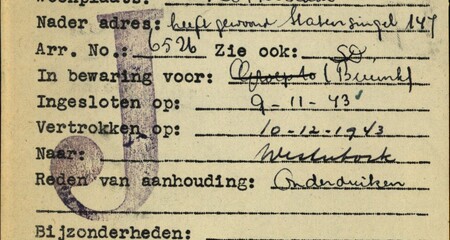 Woonplaats:
Nader adres: heeft gewoond Statensingel 147
Arr. No.: 6526 Zie ook: SD.
In bewaring voor:
Ingesloten op: 9-11-43
Vertrokken op: 10-12-1943
Naar: Westerbork
Reden van aanhouding: Onderduiken
Bijzonderheden:
J